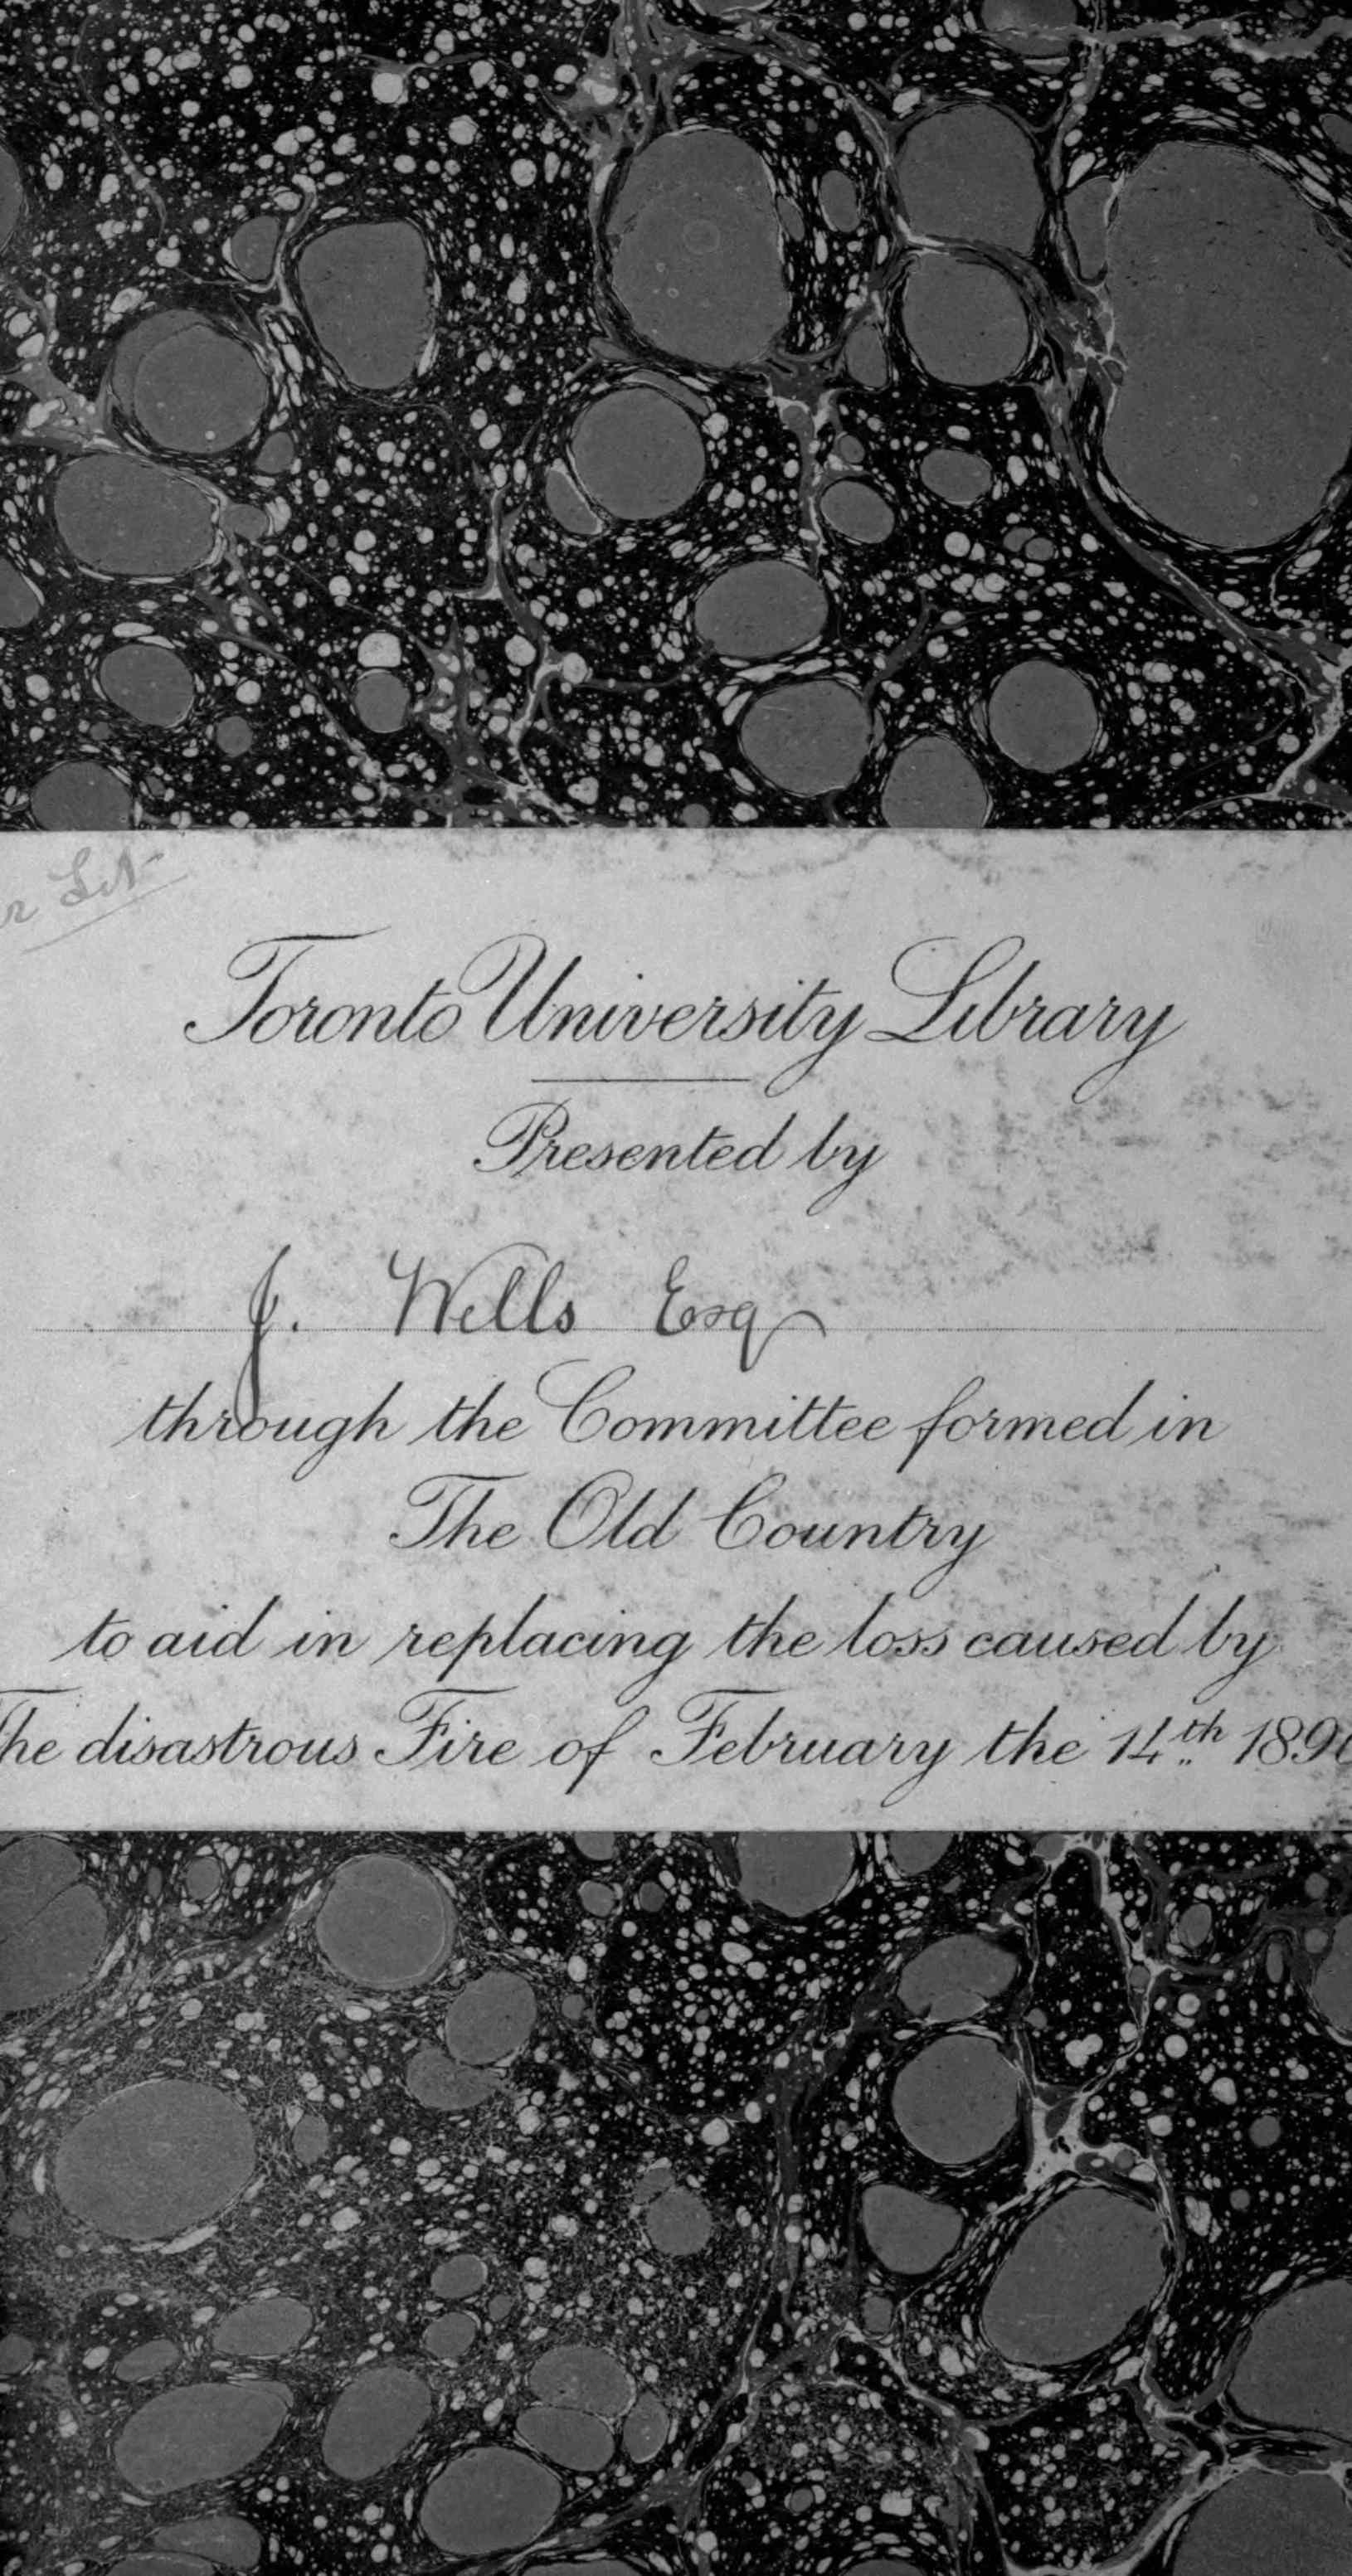 Toronto University Library
Presented by
J. Wells Esq
through the Committee formed in
The Old Country
to aid in replacing the loss caused by
The disastrous Fire of February the 14th 1890